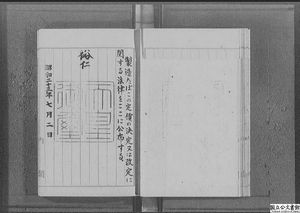 製造たばこの定價の決定又は改定に
関する法律をここに公布する。
裕仁
天皇御璽
昭和二十三年七月二日
国立公文書館